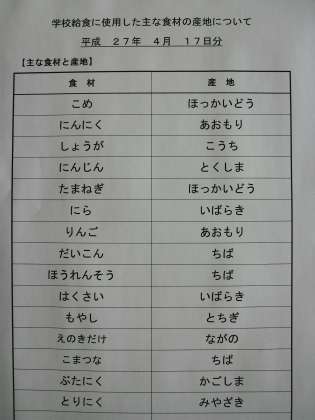 学校給食に使用した主な食材の産地について
平成 27年 4月 17日分
【主な食材と産地】
食 材 産 地
こめ ほっかいどう
にんにく あおもり
しょうが こうち
にんじん とくしま
たまねぎ ほっかいどう
にら いばらき
りんご あおもり
だいこん ちば
ほうれんそう ちば
はくさい いばらき
もやし とちぎ
えのきだけ ながの
こまつな ちば
ぶたにく かごしま
とりにく みやざき